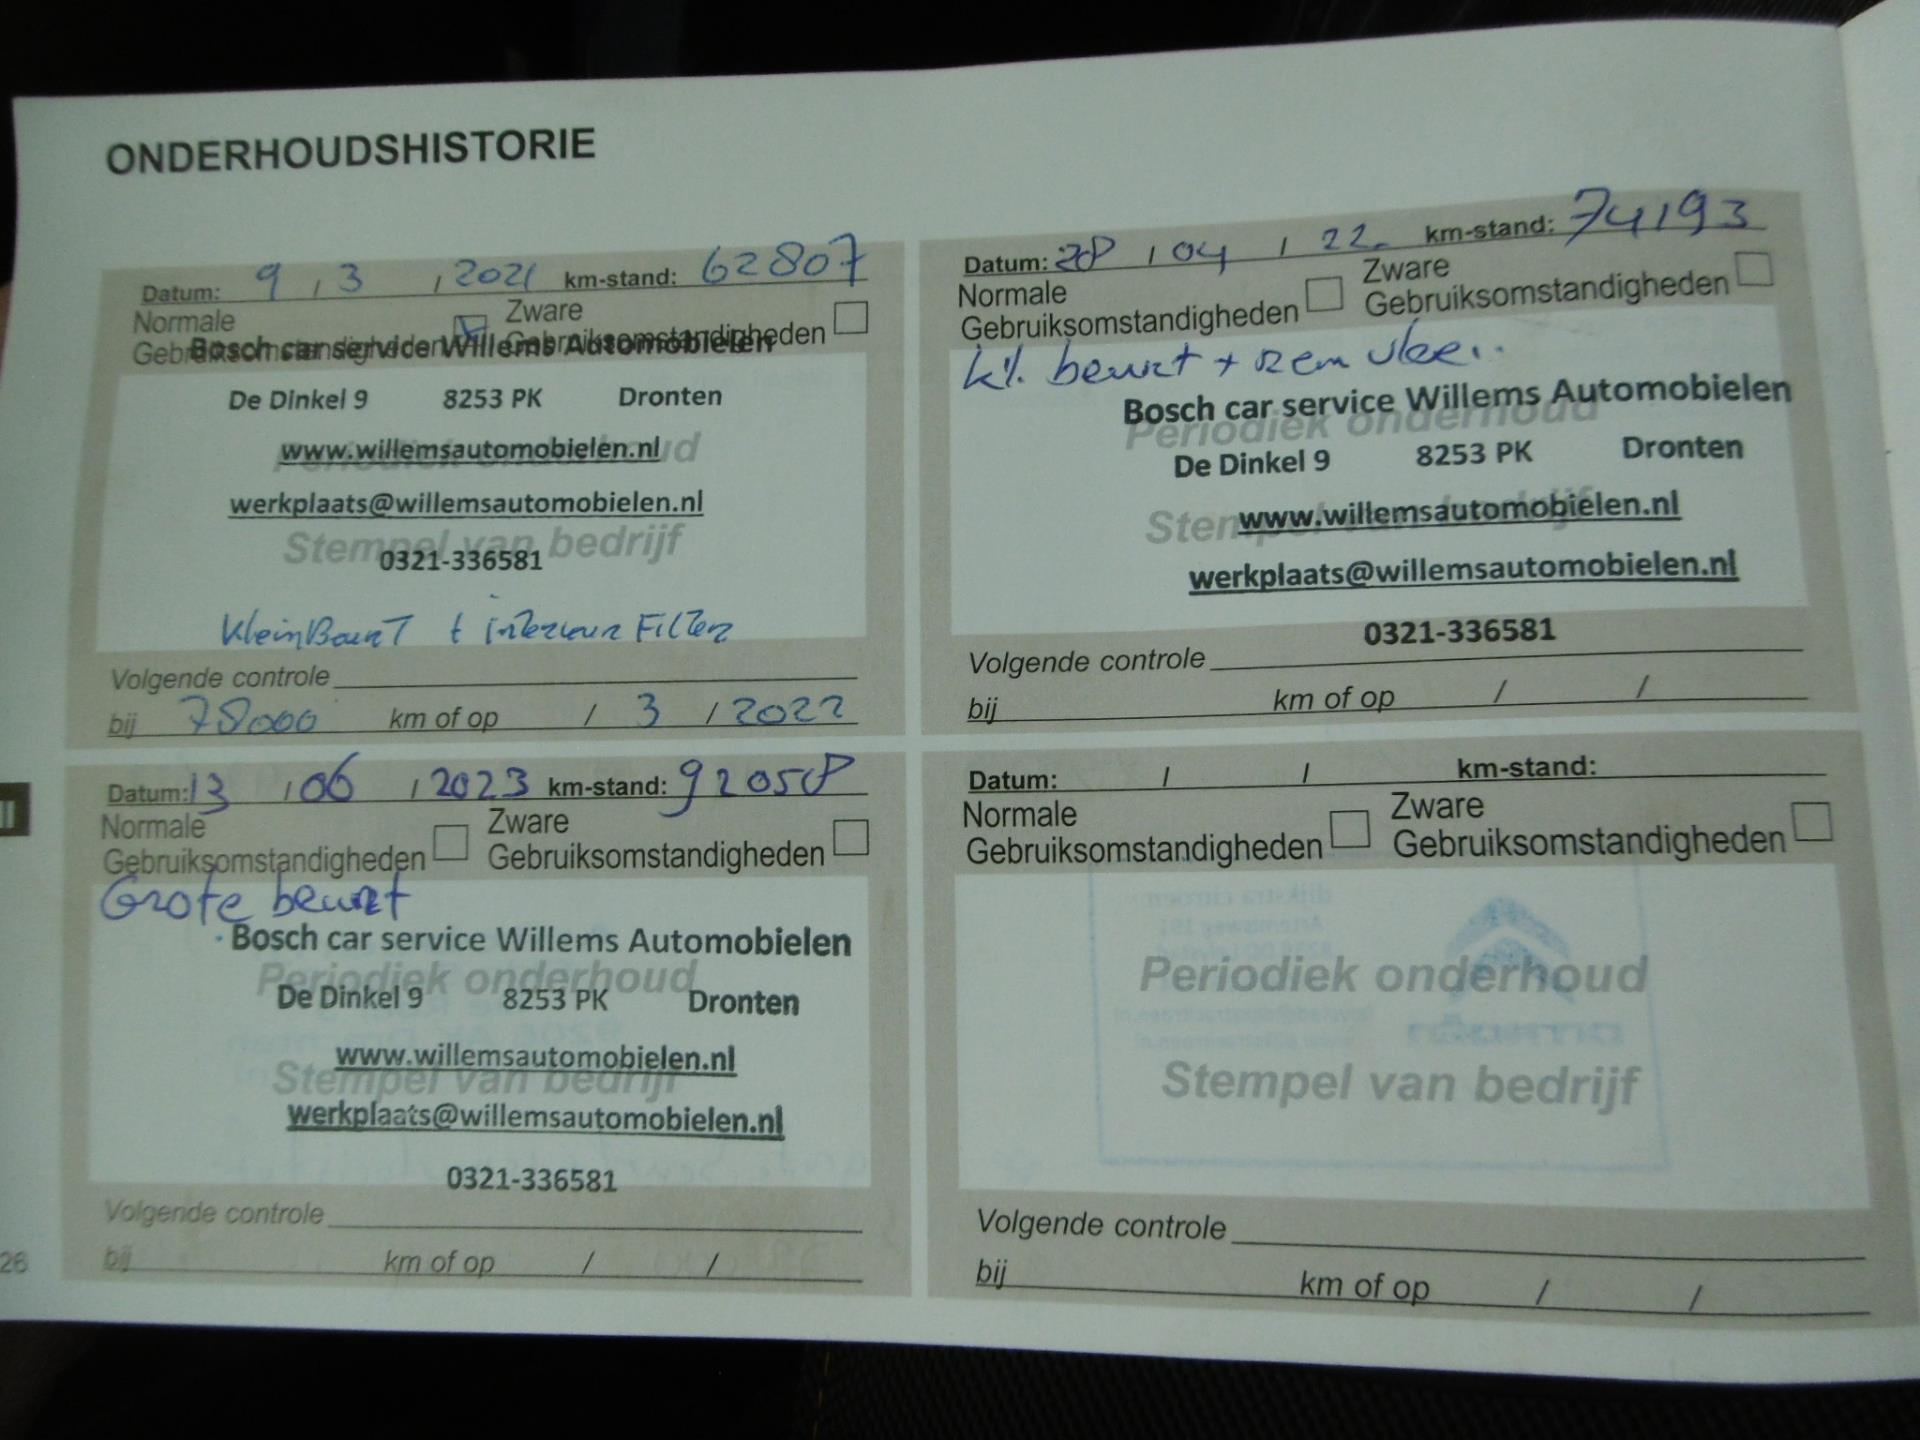 ONDERHOUDSHISTORIE
Datum: 9 / 3 / 2021 km-stand: 62807
Normale Zware
Gebruiksomstandigheden Gebruiksomstandigheden
Bosch car service Willems Automobielen
De Dinkel 9 8253 PK Dronten
www.willemsautomobielen.nl
Periodiek onderhoud
werkplaats@willemsautomobielen.nl
Stempel van bedrijf
0321-336581
KleinBeurT + interieur Filter
Volgende controle
bij 78000 km of op / 3 / 2022
Datum: 28 / 04 / 22. km-stand: 74193
Normale Zware
Gebruiksomstandigheden Gebruiksomstandigheden
kl. beurt + rem vloei.
Bosch car service Willems Automobielen
Periodiek onderhoud
De Dinkel 9 8253 PK Dronten
www.willemsautomobielen.nl
Stempel van bedrijf
werkplaats@willemsautomobielen.nl
0321-336581
Volgende controle
bij km of op / /
Datum: 13 / 06 / 2023 km-stand: 92058
Normale Zware
Gebruiksomstandigheden Gebruiksomstandigheden
Grote beurt
Bosch car service Willems Automobielen
Periodiek onderhoud
De Dinkel 9 8253 PK Dronten
www.willemsautomobielen.nl
Stempel van bedrijf
werkplaats@willemsautomobielen.nl
0321-336581
Volgende controle
bij km of op / /
Datum: / / km-stand:
Normale Zware
Gebruiksomstandigheden Gebruiksomstandigheden
Periodiek onderhoud
Stempel van bedrijf
Volgende controle
bij km of op / /
26